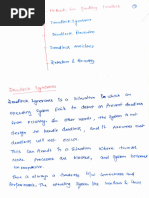 Methods for Handling Deadlock
Deadlock Ignorance
Deadlock Prevention
Deadlock Avoidance
Detection & Recovery
Deadlock Ignorance
Deadlock Ignorance is a Situation in which an
operating System fails to detect or Prevent deadlocks
among Processes. In other words, the System is not
design to handle deadlocks, and it Assumes that
deadlocks will not occur.
This can Result in a Situation where
Processes are blocked, and System becomes
This is always a tradeoff b/w correctness and
performance. The operating System like Windows & Linux